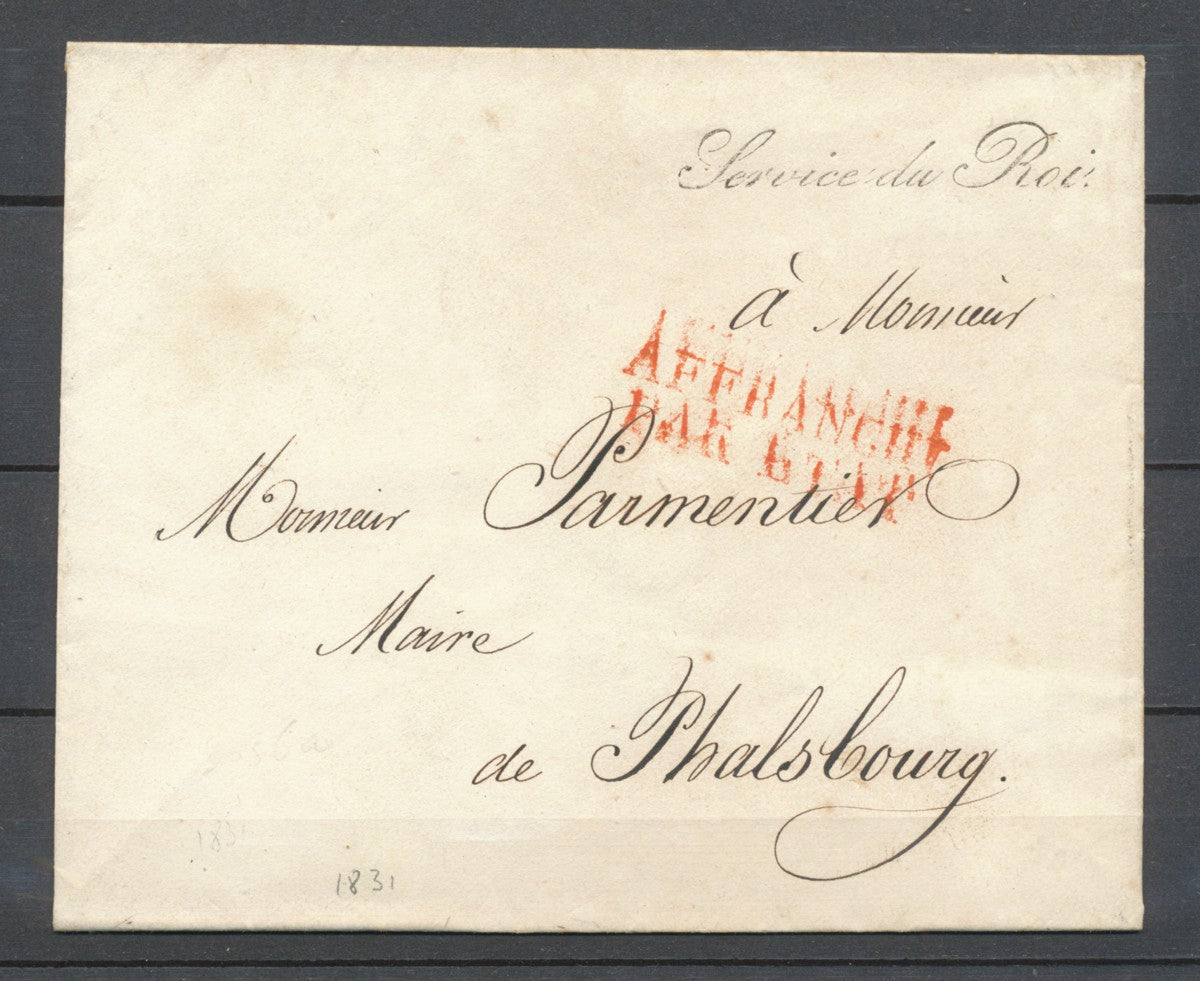 Service du Roi.
à Monsieur
AFFRANCHI
PAR ETAT
Monsieur Parmentier
Maire
de Phalsbourg.
1831
1831